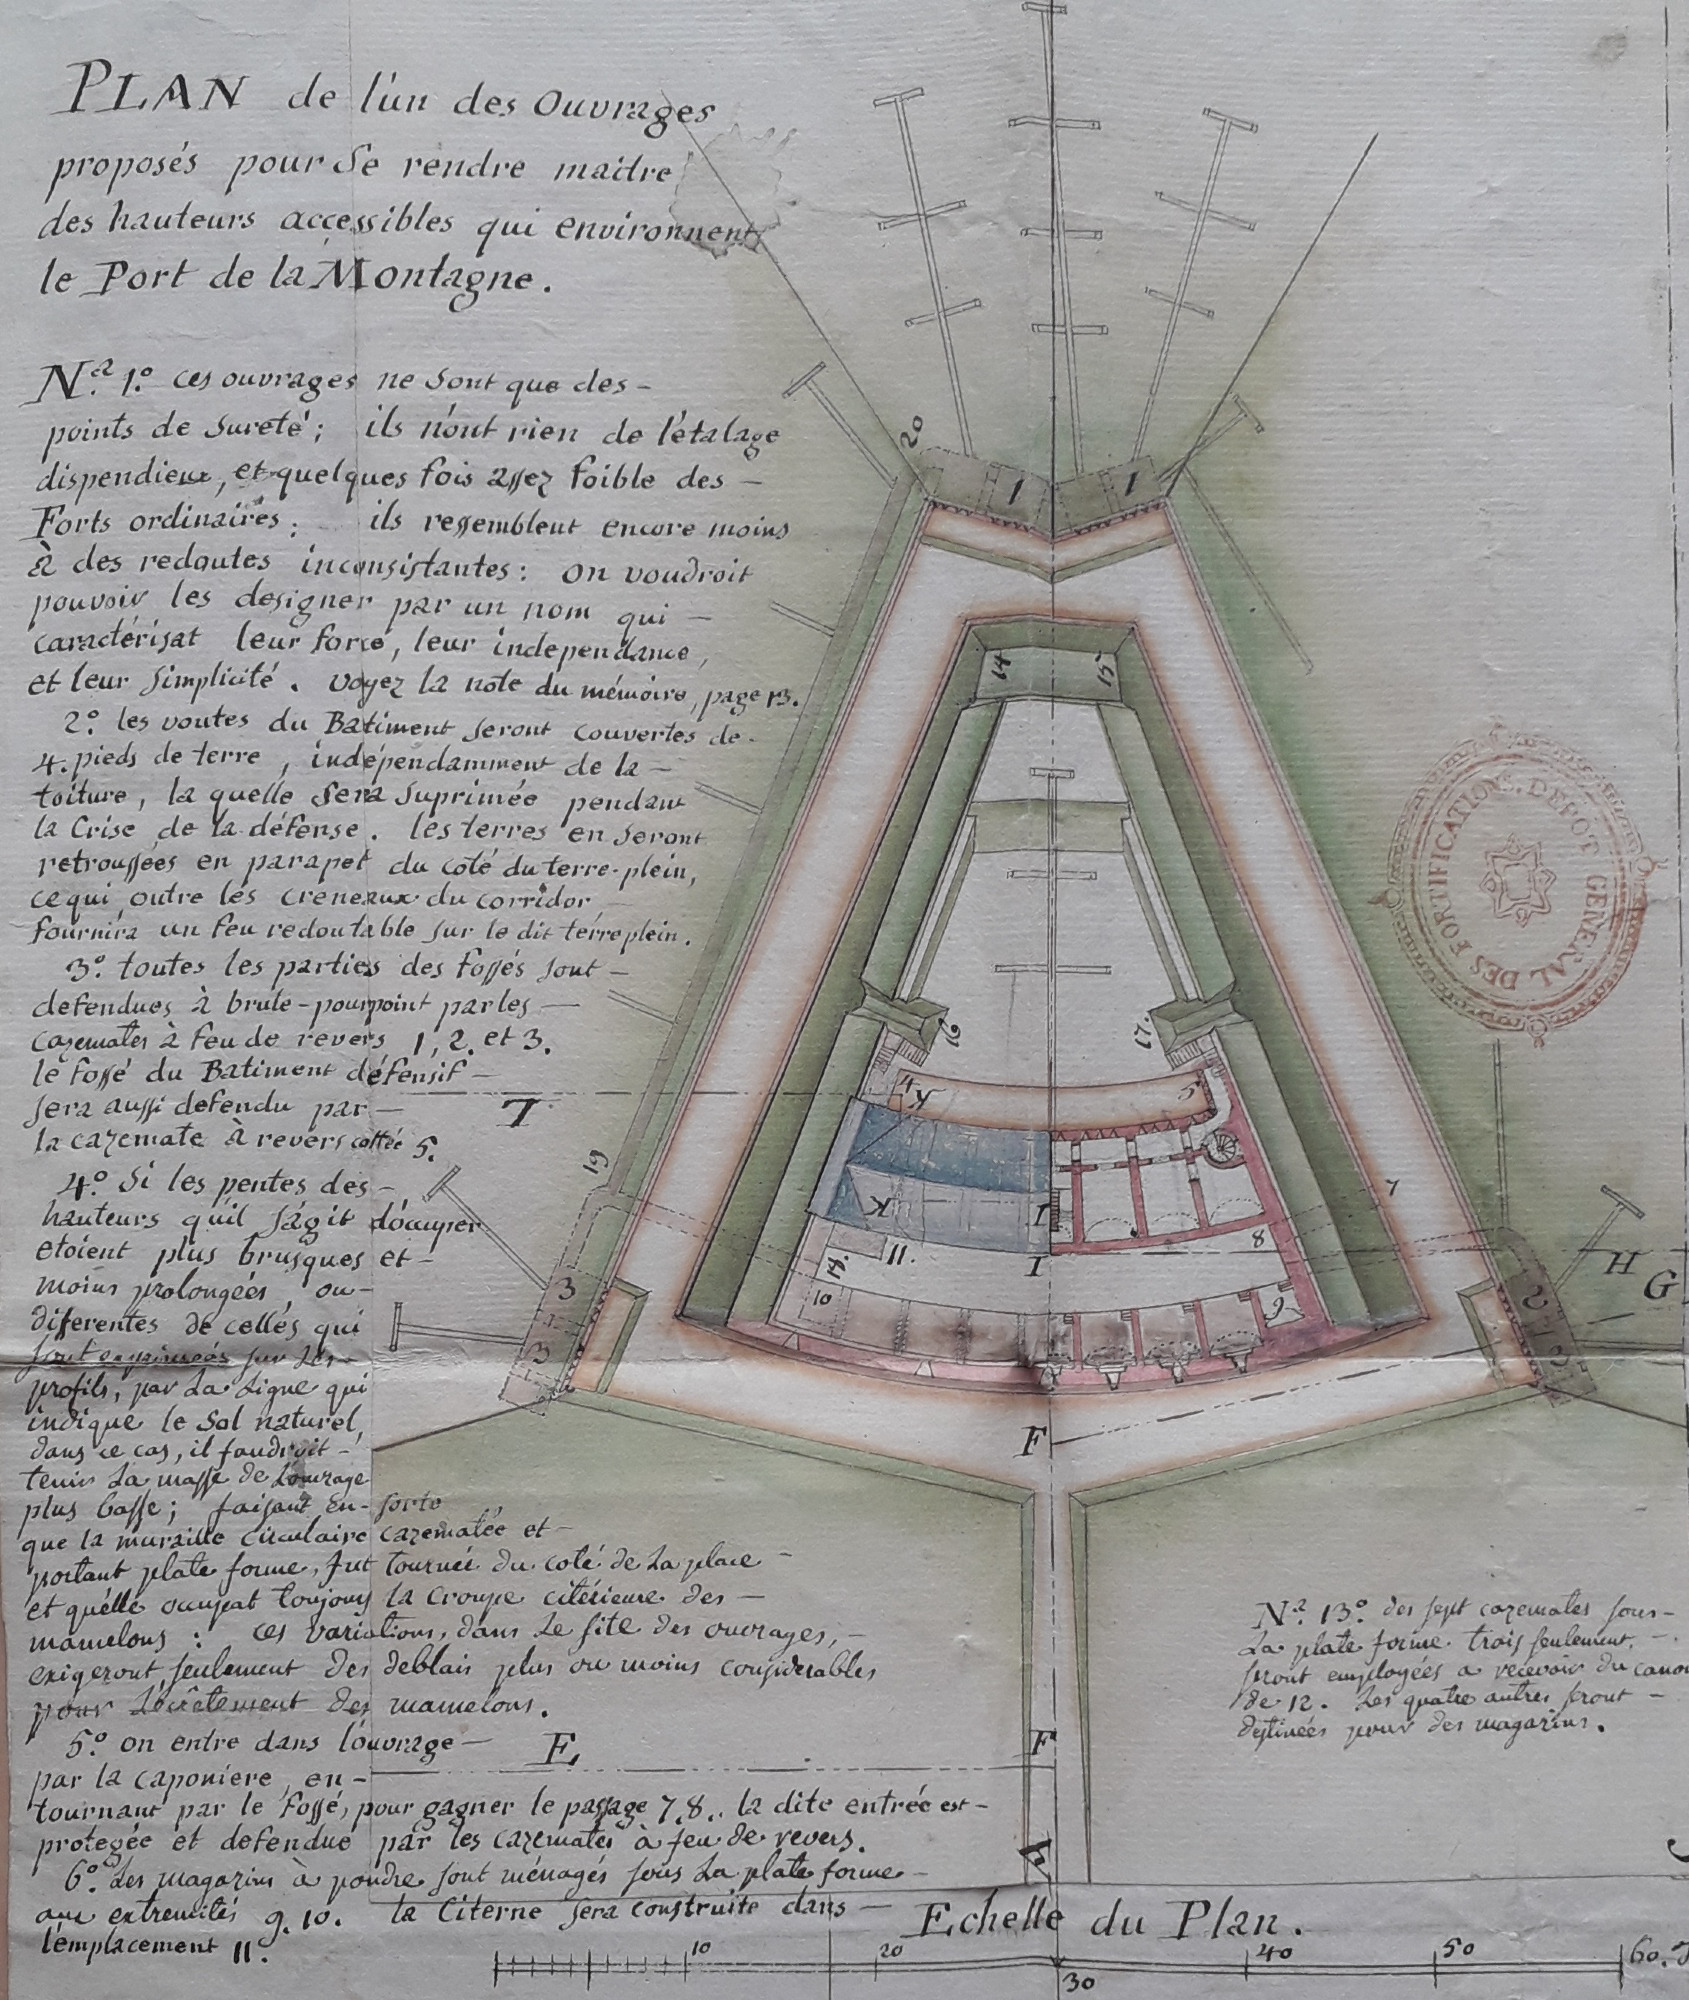 PLAN de l'un des Ouvrages
proposés pour Se rendre maitre
des hauteurs accessibles qui environnent
le Port de la Montagne.
N.a 1.o ces ouvrages ne Sont que des-
points de Sureté; ils n'ont rien de l'étalage
dispendieux, et quelques fois assez foible des-
Forts ordinaires; ils ressemblent encore moins
à des redoutes inconsistantes: on voudroit
pouvoir les designer par un nom qui-
caractérisat leur force, leur independance,
et leur Simplicité. Voyez la note du mémoire, page 13.
2.o les voutes du Batiment seront couvertes de-
4. pieds de terre, indépendamment de la-
toiture, la quelle Sera Suprimée pendant
la Crise de la défense. les terres en seront
retroussées en parapet du coté du terre-plein,
ce qui outre les creneaux du corridor-
fournira un feu redoutable sur le dit térreplein.
3.o toutes les parties des fossés sont-
defendues à brule-pourpoint par les-
cazemates à feu de revers 1, 2. et 3.
le fossé du Batiment défensif-
sera aussi defendu par-
la cazemate à revers cottée 5.
4.o Si les pentes des-
hauteurs qu'il s'agit d'occuper
etoient plus brusques et-
moins prolongées, ou-
diferentes de celles qui
sont exprimées sur les-
profils, par La Ligne qui
indique le Sol naturel,
dans ce cas, il faudroit-
tenir La masse de L'ouvrage
plus basse; faisant en-sorte
que la muraille circulaire cazematée et-
portant plate forme, fut tournée du coté de La place-
et qu'elle occupat toujours la Croupe citérieure des-
mamelons: ces variations, dans Le site des ouvrages,-
exigeront seulement des deblais plus ou moins considerables
pour L'écrêtement des mamelons.
5.o on entre dans l'ouvrage-
par la caponiere, en-
tournant par le Fossé, pour gagner le passage 7,8.. la dite entrée est-
protegée et defendue par les cazemates à feu de revers.
6.o Les magazins à poudre sont ménagés sous La plate forme-
aux extremités 9. 10. la Citerne sera construite dans-
l'emplacement 11.o
N.a 13.o des sept cazemates sous-
La plate forme trois seulement,-
seront employées a recevoir du canon
de 12. Les quatre autres seront-
destinées pour des magazins.
20
1
1
14
15
16
17.
4
K
5
T
19
7
K
I
I
8
18.
11.
10
9
3
3
2
H
G
F
E
F
DEPOT GENERAL DES FORTIFICATIONS.
Echelle du Plan.
10
20
30
40
50
60.T